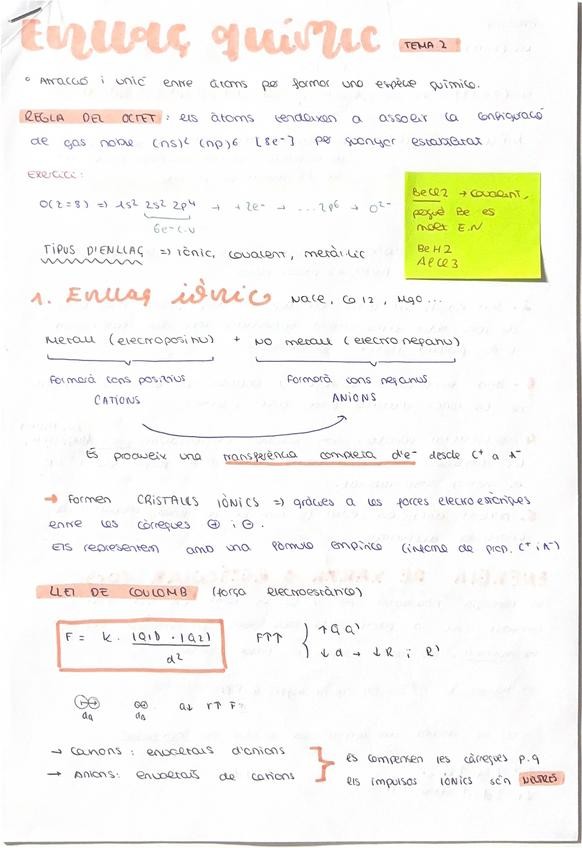 Enllaç químic TEMA 2
° Atracció i unió entre àtoms per formar una espècie química.
REGLA DEL OCTET : els àtoms tendeixen a assolir la configuració
de gas noble (ns)² (np)⁶ [8e⁻] per guanyar estabilitat
Exercici:
O(Z=8) => 1s² 2s² 2p⁴ → +2e⁻ → ...2p⁶ → O²⁻
6e⁻ C.V
BeCl2 → Covalent,
perquè Be és
molt E.N
BeH2
AlCl3
TIPUS D'ENLLAÇ => iònic, covalent, metàl·lic
1. Enllaç iònic NaCl, CaI2, MgO...
Metall (electropositiu) + NO metall (electronegatiu)
Formarà ions positius Formarà ions negatius
CATIONS ANIONS
Es produeix una transferència completa d'e⁻ desde C⁺ a A⁻
→ Formen CRISTALLS IÒNICS => gràcies a les forces electroestàtiques
entre les càrregues ⊕ i ⊖.
Els representem amb una fórmula empírica (informe de prop. C⁺ i A⁻)
LLEI DE COULOMB (força electroestàtica)
F = K · |Q1| · |Q2| / d²
F↑↑ { ↑Q Q'
↓d → ↓R i R'
→ Cations : envoltats d'anions
→ Anions: envoltats de cations
} es compensen les càrregues p.q
els impulsos iònics són NEUTRES